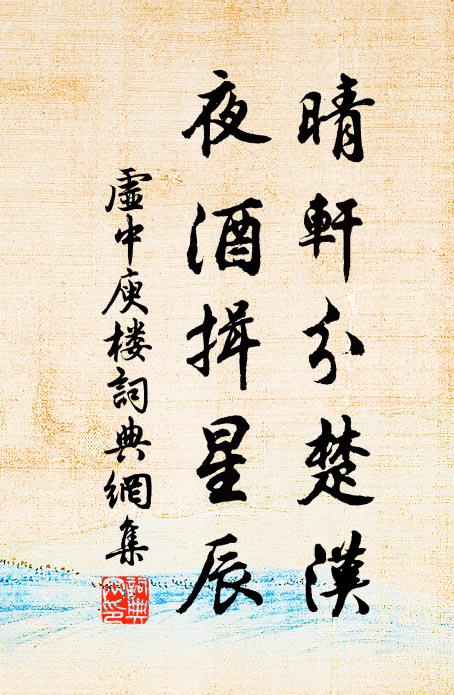 晴軒分楚漢
夜酒揖星辰
虛中庾楼詞典網集